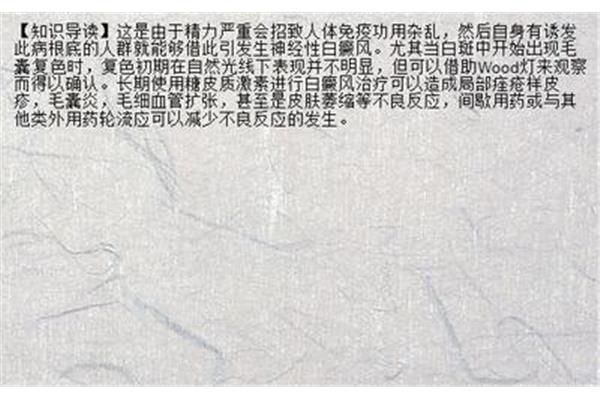 【知识导读】这是由于精力严重会招致人体免疫功用杂乱，然后自身有诱发
此病根底的人群就能够借此引发生神经性白癜风。尤其当白斑中开始出现毛
囊复色时，复色初期在自然光线下表现并不明显，但可以借助Wood灯来观察
而得以确认。长期使用糖皮质激素进行白癜风治疗可以造成局部痤疮样皮
疹，毛囊炎，毛细血管扩张，甚至是皮肤萎缩等不良反应，间歇用药或与其
他类外用药轮流应可以减少不良反应的发生。